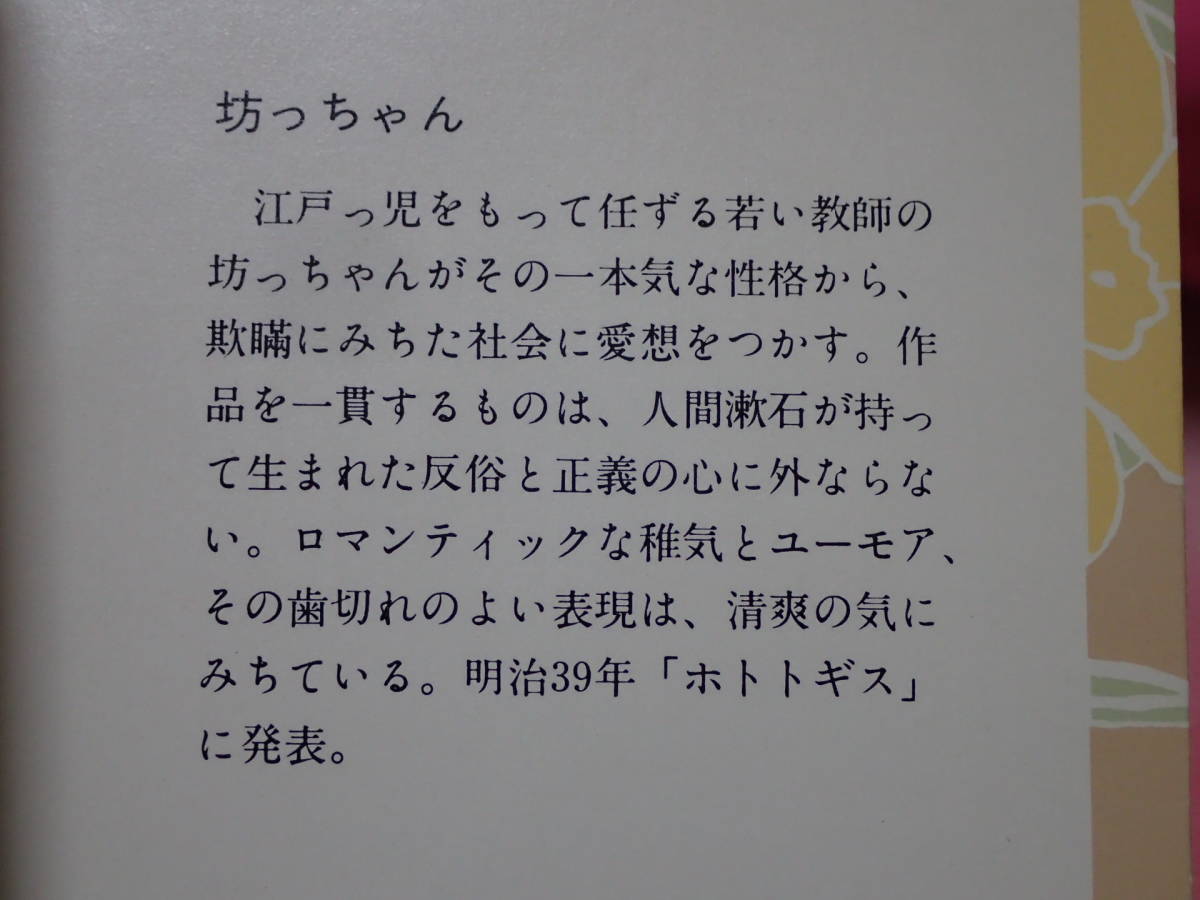 坊っちゃん
江戸っ児をもって任ずる若い教師の
坊っちゃんがその一本気な性格から、
欺瞞にみちた社会に愛想をつかす。作
品を一貫するものは、人間漱石が持っ
て生まれた反俗と正義の心に外ならな
い。ロマンティックな稚気とユーモア、
その歯切れのよい表現は、清爽の気に
みちている。明治39年「ホトトギス」
に発表。